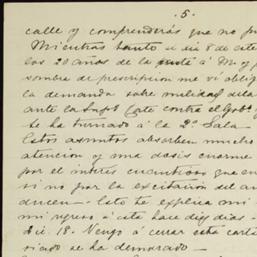 .5.
calle y comprenderás que no pu
Mientras tanto i dia 8 de este
los 20 años de la              á M. y p
sombra de prescripcion me vi oblig
la demanda sobre nulidad de la
ante la Supª Corte contra el Gobº y
se ha turnado á la 2ª Sala
Estos asuntos absorben mucho
atencion y una dosis enorme
por el interes                que en
si no por la excitación del an
ducen - Esto te explica mi
mi regreso á esta hace diez dias -
dic. 18. Vengo á cerrar esta carta
siado se ha demorado -